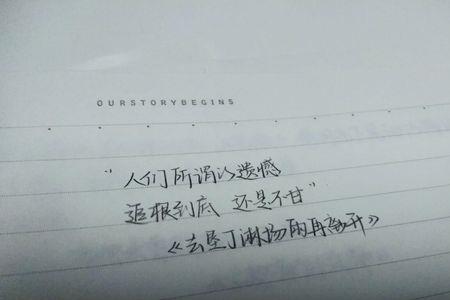 OURSTORYBEGINS
"人们所谓的遗憾
追根到底 还是不甘"
《去垦丁淋场雨再离开》